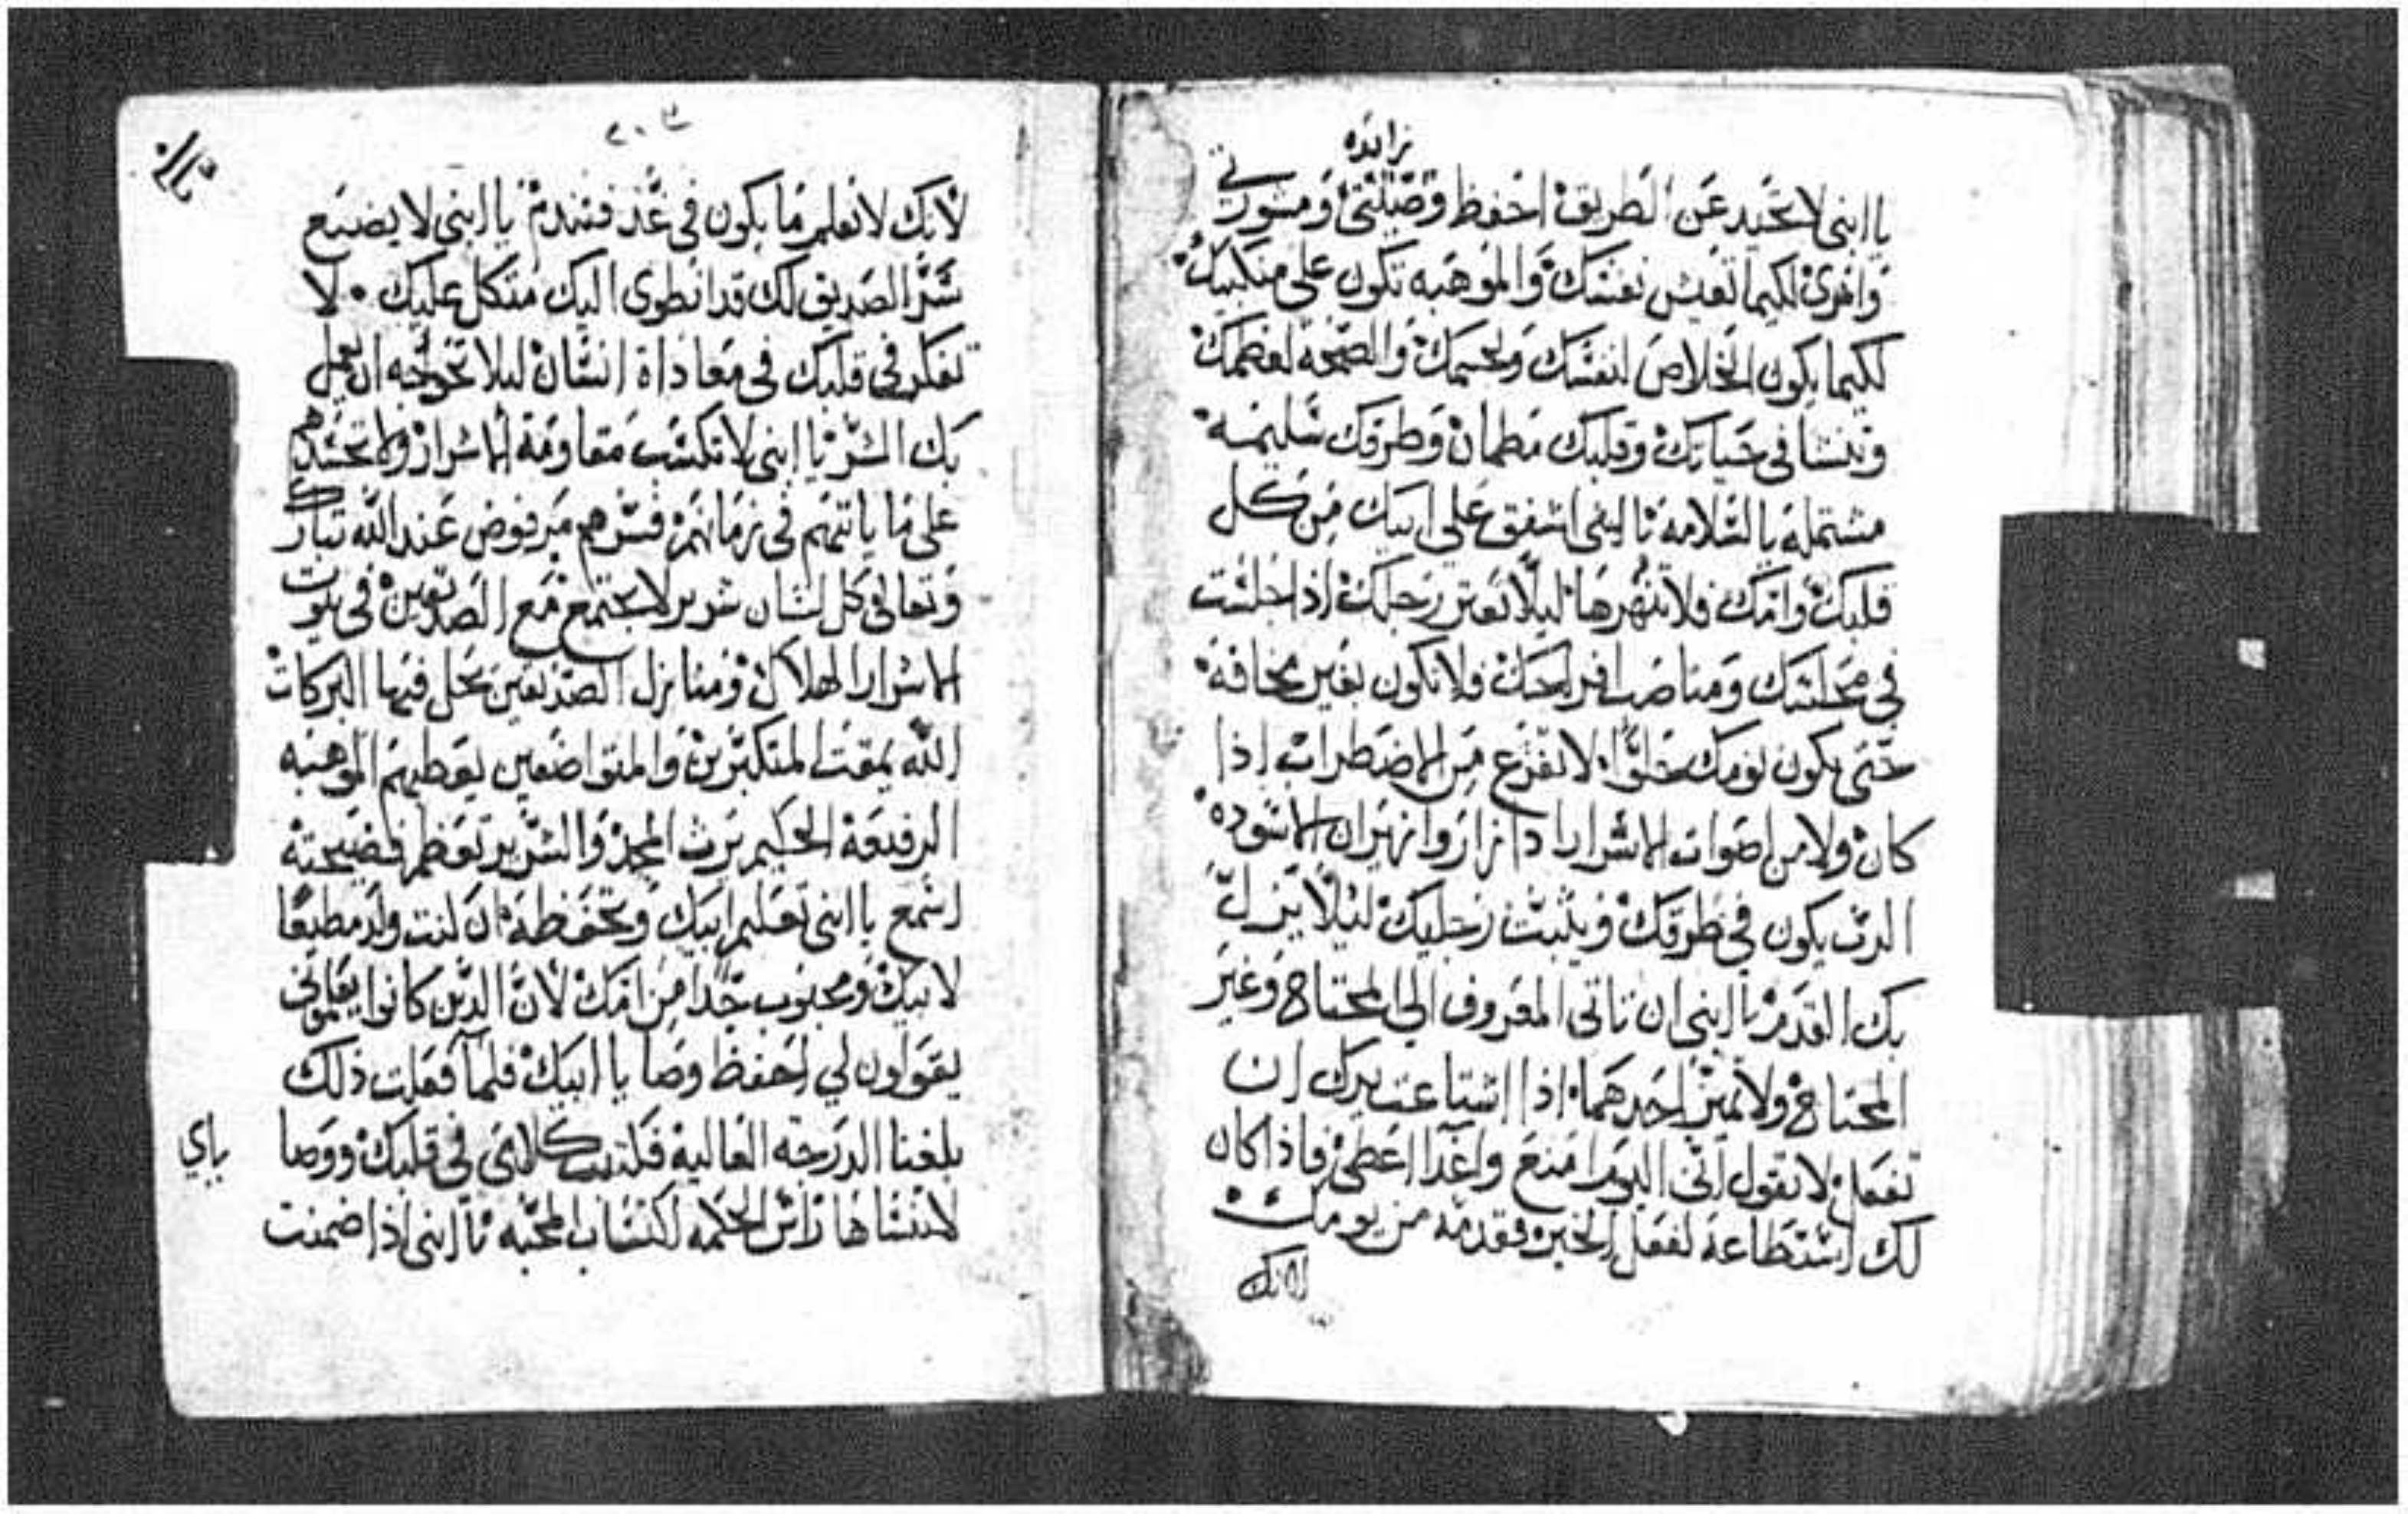 زايده
يا ابني لا تحيد عن الطريق احفظ وصيلتي ومشورتي
واخرى لكيما تعيش نفسك والموهبه تكون على منكبيك
لكيما يكون الخلاص لنفسك ولجسمك والصحه لعظمك
وتنشا في حياتك وقلبك مطمان وطرقك سليمه
مشتمله بالسلامه يا ابني اشفق على ابيك من كل
قلبك وامك فلا تنهرها ليلا تعتر رجلك اذا جلست
في محلتك ومناصب افراحك فلا تكون بغير مخافة
حتى يكون نومك حلوا لا تفزع من الاضطراب اذا
كان ولا من اصوات الاشرار اذا زاروا نهيران الاسوده
الرب يكون في طرقك ويثبت رجليك ليلا يزل
بك القدم يا ابني ان تاتي المعروف الى المحتاج وغير
المحتاج ولا تميز احدهما اذا استاعت يدك ان
تفعل لا تقول اني اليوم امنع واغدا اعطي فاذا كان
لك استطاعة لفعل الخير فقدمه من يومك
لانك
٢٠٣
لانك لا تعلم ما يكون في غد فتندم يا ابني لا يضيع
شر الصديق لك قد انطوى اليك متكل عليك لا
تفكر في قلبك في معاداة انسان ليلا تحوجه ان يعمل
بك الشر يا ابني لا تكسب مقاومة الاشرار ولا تحسدهم
على ما ياتيهم في زمانهم فسرهم مرفوض عند الله تبارك
وتعالى كل انسان شرير لا يجتمع مع الصديقين في بيوت
الاشرار الهلاك ومنازل الصديقين تحل فيها البركات
الله يمقت المتكبرين والمتواضعين يعطيهم الموهبه
الرفيعة الحكيم يرث المجد والشرير تعظم فضيحته
اسمع يا ابني تعليم ابيك وتحفظه ان كنت ولد مطيعا
لابيك ومحبوب جدا من امك لان الدين كانوا يعلموني
يقولون لي احفظ وصايا ابيك فلما فعلت ذلك
بلغنا الدرجه العاليه فلتثبت كلامي في قلبك ووصا
ياي
لا تنساها راس الحكمه اكتساب المحبه يا ابني اذا ضمنت